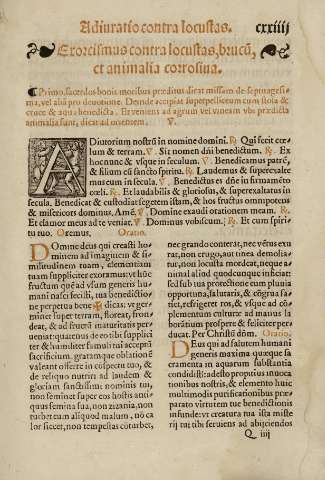 Adiuratio contra locustas. cxxiiij
Exorcismus contra locustas, brucũ,
et animalia corrosiua.
¶ Primo, sacerdos bonis moribus præditus dicat missam de septuagesi-
ma, vel aliã pro deuotione. Deinde accipiat superpelliceum cum stola &
cruce & aqua benedicta. Et veniens ad agrum vel vineam vbi prædicta
animalia sunt, dicat ad orientem. V.
Adiutorium nostrũ in nomine domini. R. Qui fecit cœ-
lum & terram. V. Sit nomen dñi benedictum. R. Ex
hoc nunc & vsque in seculum. V. Benedicamus patrẽ,
& filium cũ sancto spiritu. R. Laudemus & superexalte
mus eum in secula. V. Benedictus es dñe in firmamẽto
cœli. R. Et laudabilis & gloriosus, & superexaltatus in
secula. Benedicat & custodiat segetem istam, & hos fructus omnipotens
& misericors dominus. Amẽ. V. Domine exaudi orationem meam. R.
Et clamor meus ad te veniat. V. Dominus vobiscum. R. Et cum spiri-
tu tuo. Oremus, Oratio.
Domine deus qui creasti ho-
minem ad imaginem & si-
militudinem tuam, clementiam
tuam suppliciter exoramus: vt hũc
fructum quẽ ad vsum generis hu-
mani nasci fecisti, tua benedictio
ne perpetua bene✠dicas: vt ger-
minet super terram, floreat, fron-
deat, & ad fructũ maturitatis per
ueniat: quatenus de eo tibi supplici
ter & humiliter famuli tui acceptũ
sacrificium, gratamque oblationẽ
valeant offerre in conspectu tuo, &
de reliquo nutriri ad laudem &
gloriam sanctissimi nominis tui,
non seminet super eos hostis anti-
quus semina sua, non zizania, non
turbet eum aliquod malum, nõ ca
lor siccet, non tempestas cõturbet,
nec grando conterat, nec vẽtus exu
rat, non erugo, aut tinea demolia-
tur, non locusta mordeat, neque a-
nimal aliud quodcunque inficiat:
sed sub tua protectione cum pluuia
opportuna, salutaris, & cõgrua fa-
ueat, refrigeret ros, & vsque ad cõ-
plementum culturæ ad manus la-
borãtium prospere & feliciter per-
ducat. Per Christũ dõm. Oratio.
Deus qui ad salutem humani
generis maxima quæque sa
cramenta in aquarum substantia
condidisti: adesto propitius inuoca
tionibus nostris, & elemento huic
multimodis purificationibus præ-
parato virtutem tuæ benedictionis
infunde: vt creatura tua ista myste
rij tui tibi seruiens ad abijciendos
Q iiij